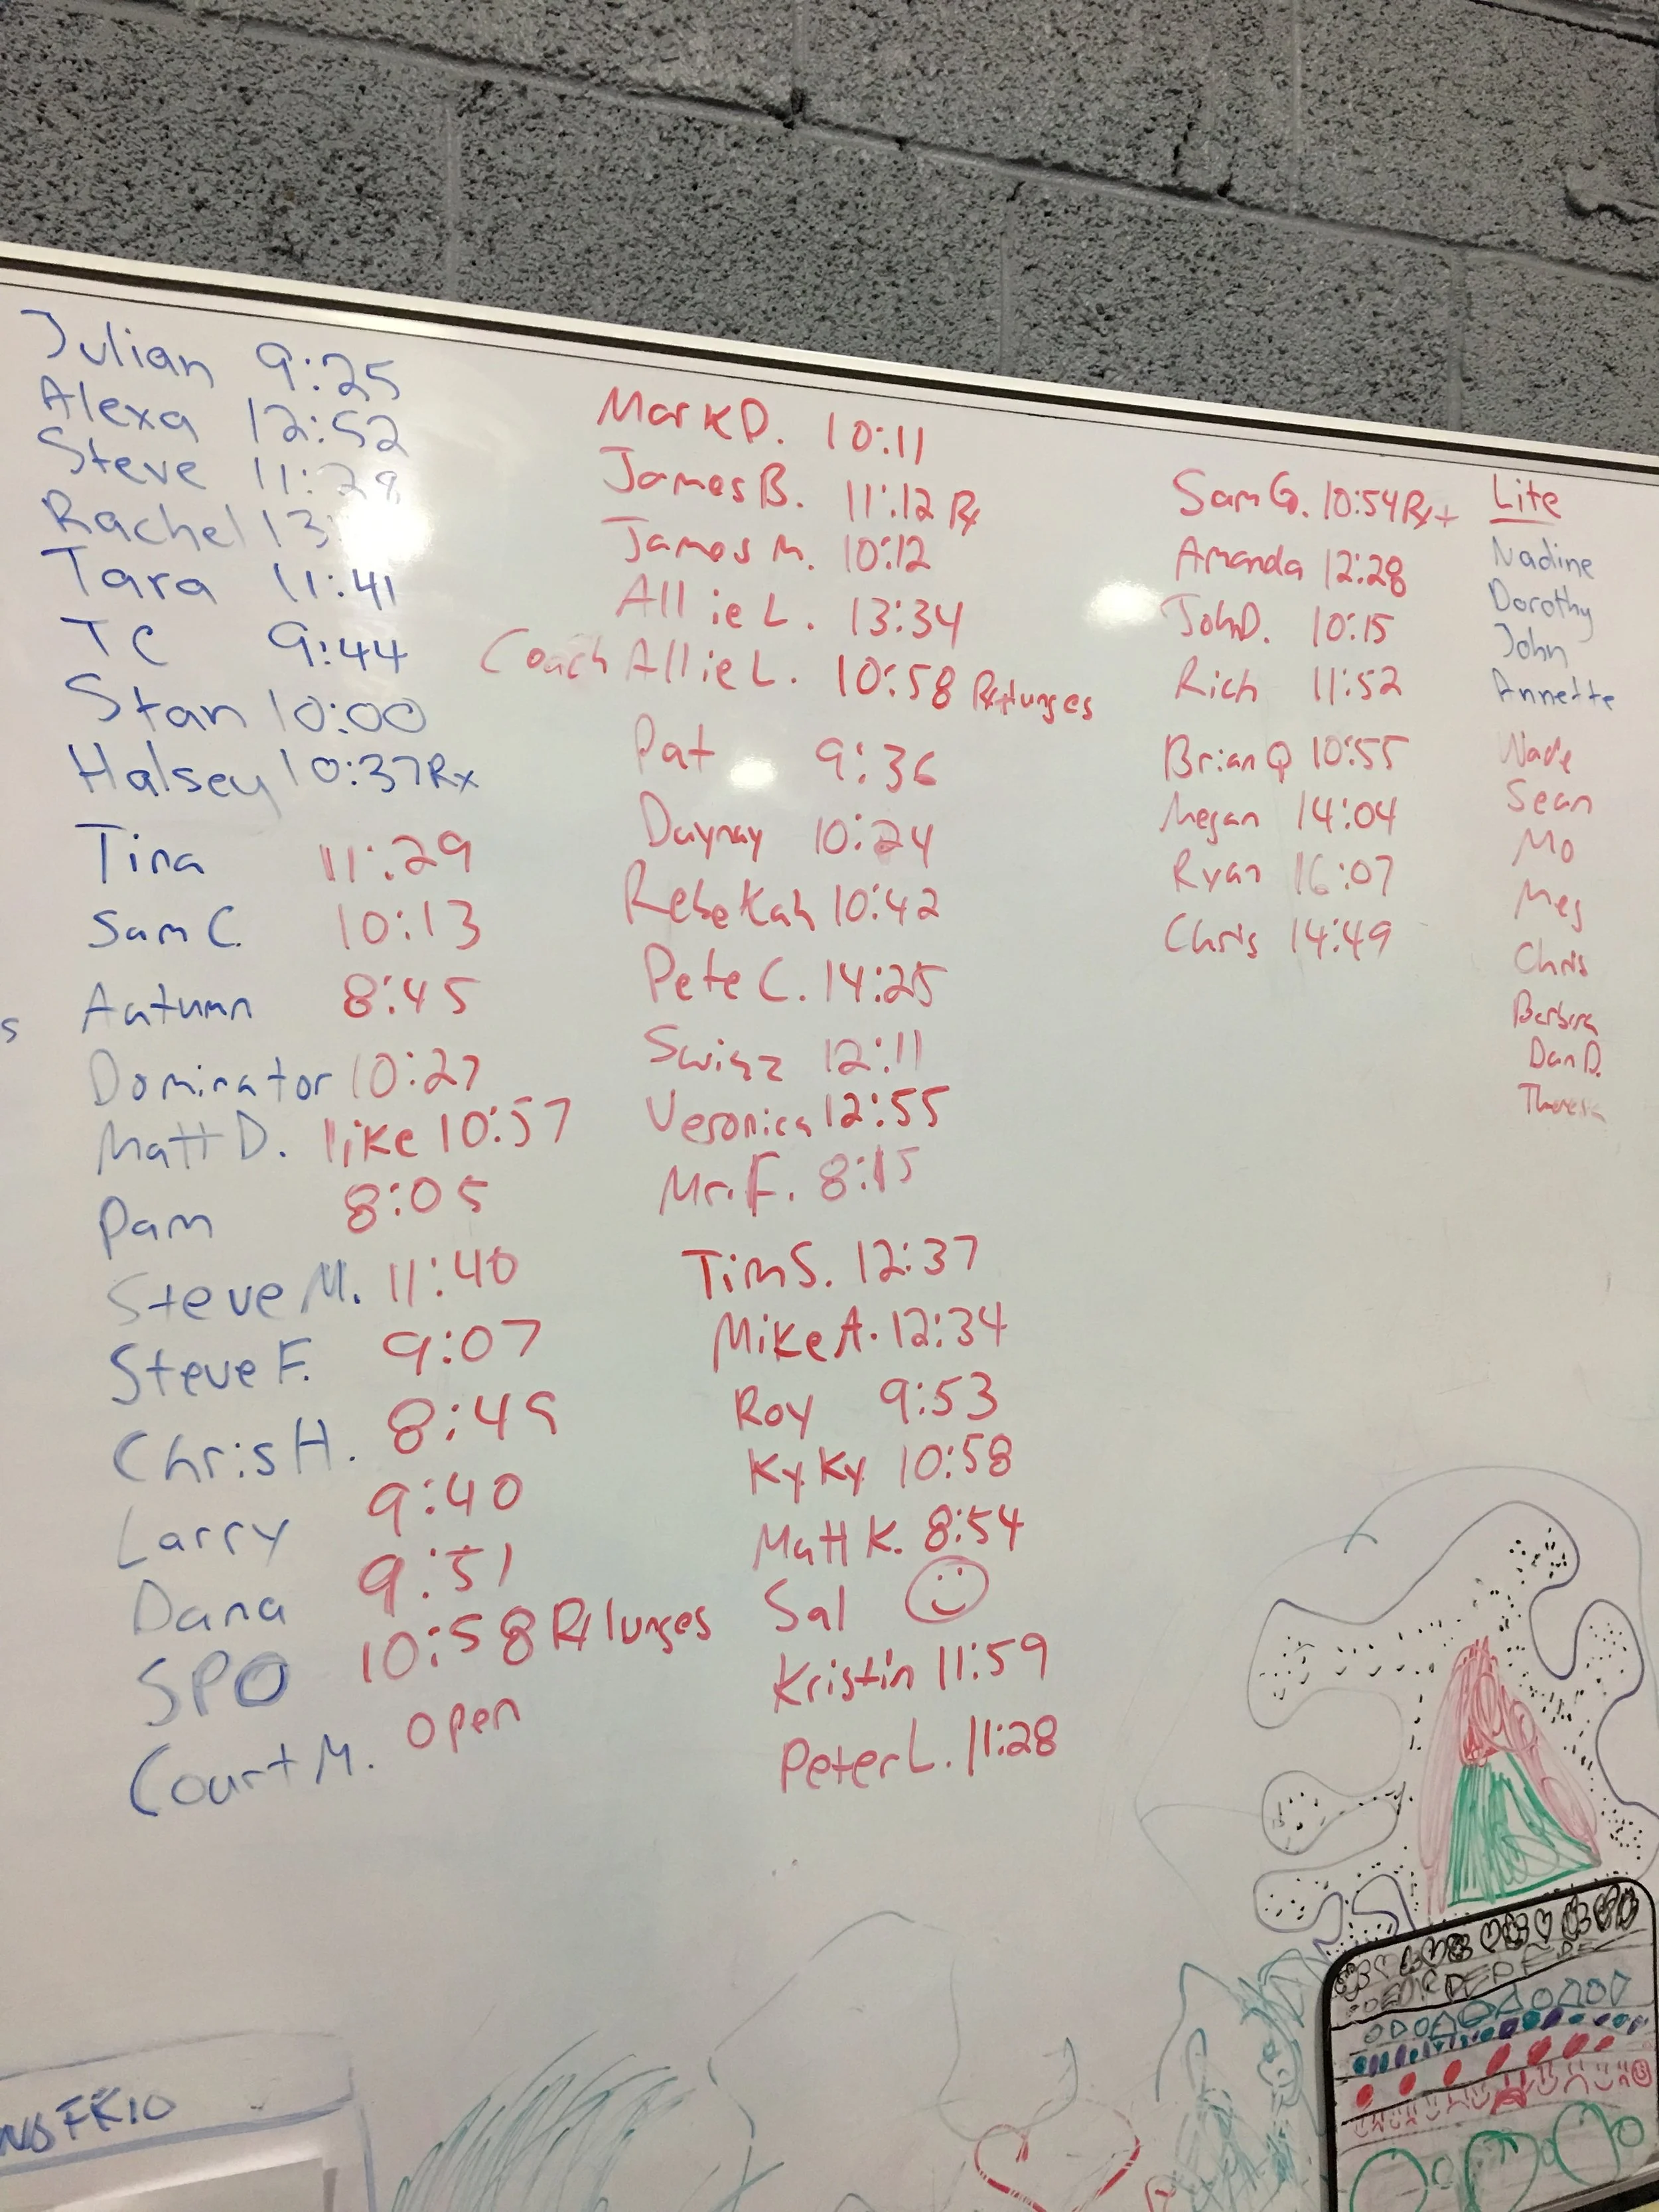 Julian 9:25
Alexa 12:52
Steve 11:28
Rachel 13:
Tara 11:41
TC 9:44
Stan 10:00
Halsey 10:37 Rx
Tina 11:29
Sam C. 10:13
Autumn 8:45
s
Dominator 10:27
Matt D. like 10:57
Pam 8:05
Steve M. 11:40
Steve F. 9:07
Chris H. 8:49
Larry 9:40
Dana 9:51
SPO 10:58 Rx lunges
Court M. open
Mark D. 10:11
James B. 11:12 Rx
James M. 10:12
Allie L. 13:34
Coach Allie L. 10:58 Rx lunges
Pat 9:36
Daynay 10:24
Rebekah 10:42
Pete C. 14:25
12:11
Veronica 12:55
Mr. F. 8:15
Tim S. 12:37
Mike A. 12:34
Roy 9:53
Ky Ky 10:58
Matt K. 8:54
Sal
Kristin 11:59
Peter L. 11:28
Sam G. 10:54 Rx+
Amanda 12:28
John D. 10:15
Rich 11:52
Brian Q 10:55
Megan 14:04
Ryan 16:07
Chris 14:49
Lite
Nadine
Dorothy
John
Annette
Wade
Sean
Mo
Meg
Chris
Barbara
Dan D.
Theresa